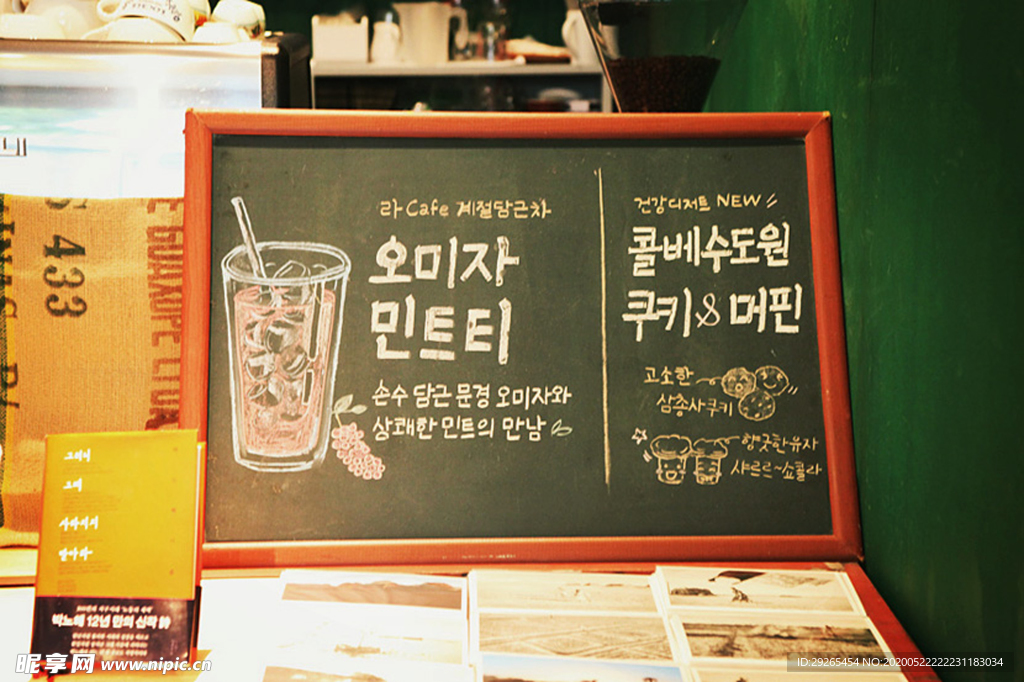 라 Cafe 계절담근차
오미자
민트티
손수 담근 문경 오미자와
상쾌한 민트의 만남
건강디저트 NEW
콜베수도원
쿠키 & 머핀
고소한
삼총사쿠키
향긋한유자
샤르르~쇼콜라
네
433
그러니
그대
사라지지
말아라
박노해 12년 만의 신작 詩
昵享网 www.nipic.cn
ID:29265454 NO:20200522222231183034